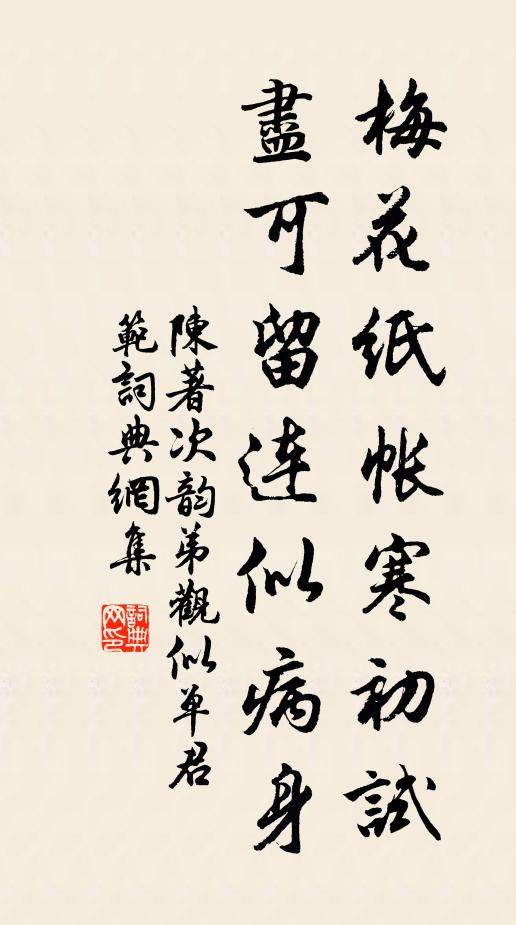 梅花紙帳寒初試
盡可留連似病身
陳著次韵弟觀似單君
範詞典網集
詞典
网印